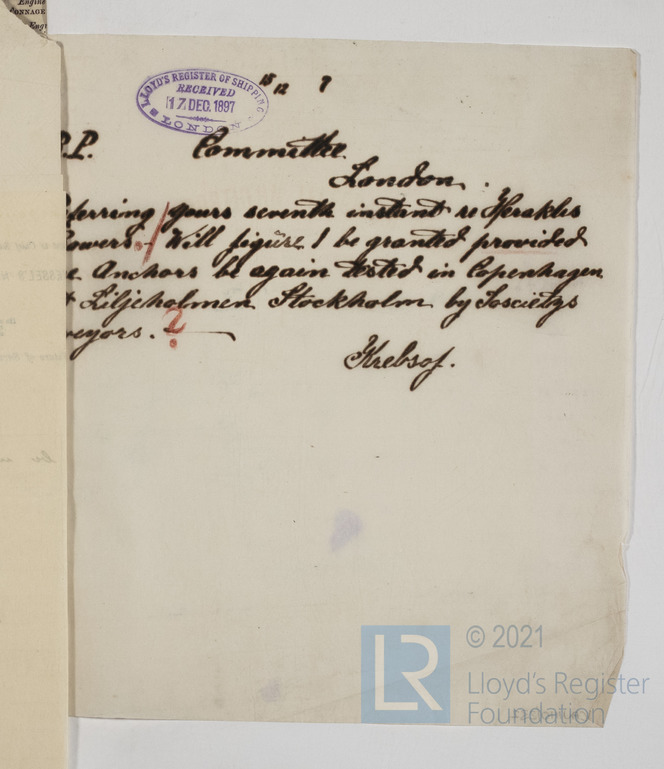 Engine
ONNAGE
Engi
LLOYD'S REGISTER OF SHIPPING
RECEIVED
17 DEC. 1897
LONDON
15 12 7
P. Committee
London.
ferring yours seventh instant re Herakles
owers. Will figure 1 be granted provided
e Anchors be again tested in Copenhagen
t Liljeholmen Stockholm by Soscietys
veyors. ?
Krebsof.
LR
© 2021
Lloyd's Register
Foundation